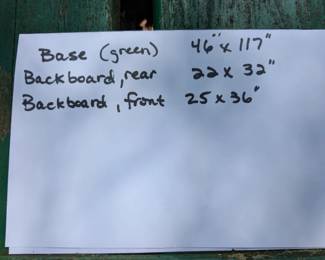 Base (green) 46" x 117"
Backboard, rear 22 x 32"
Backboard, front 25 x 36"